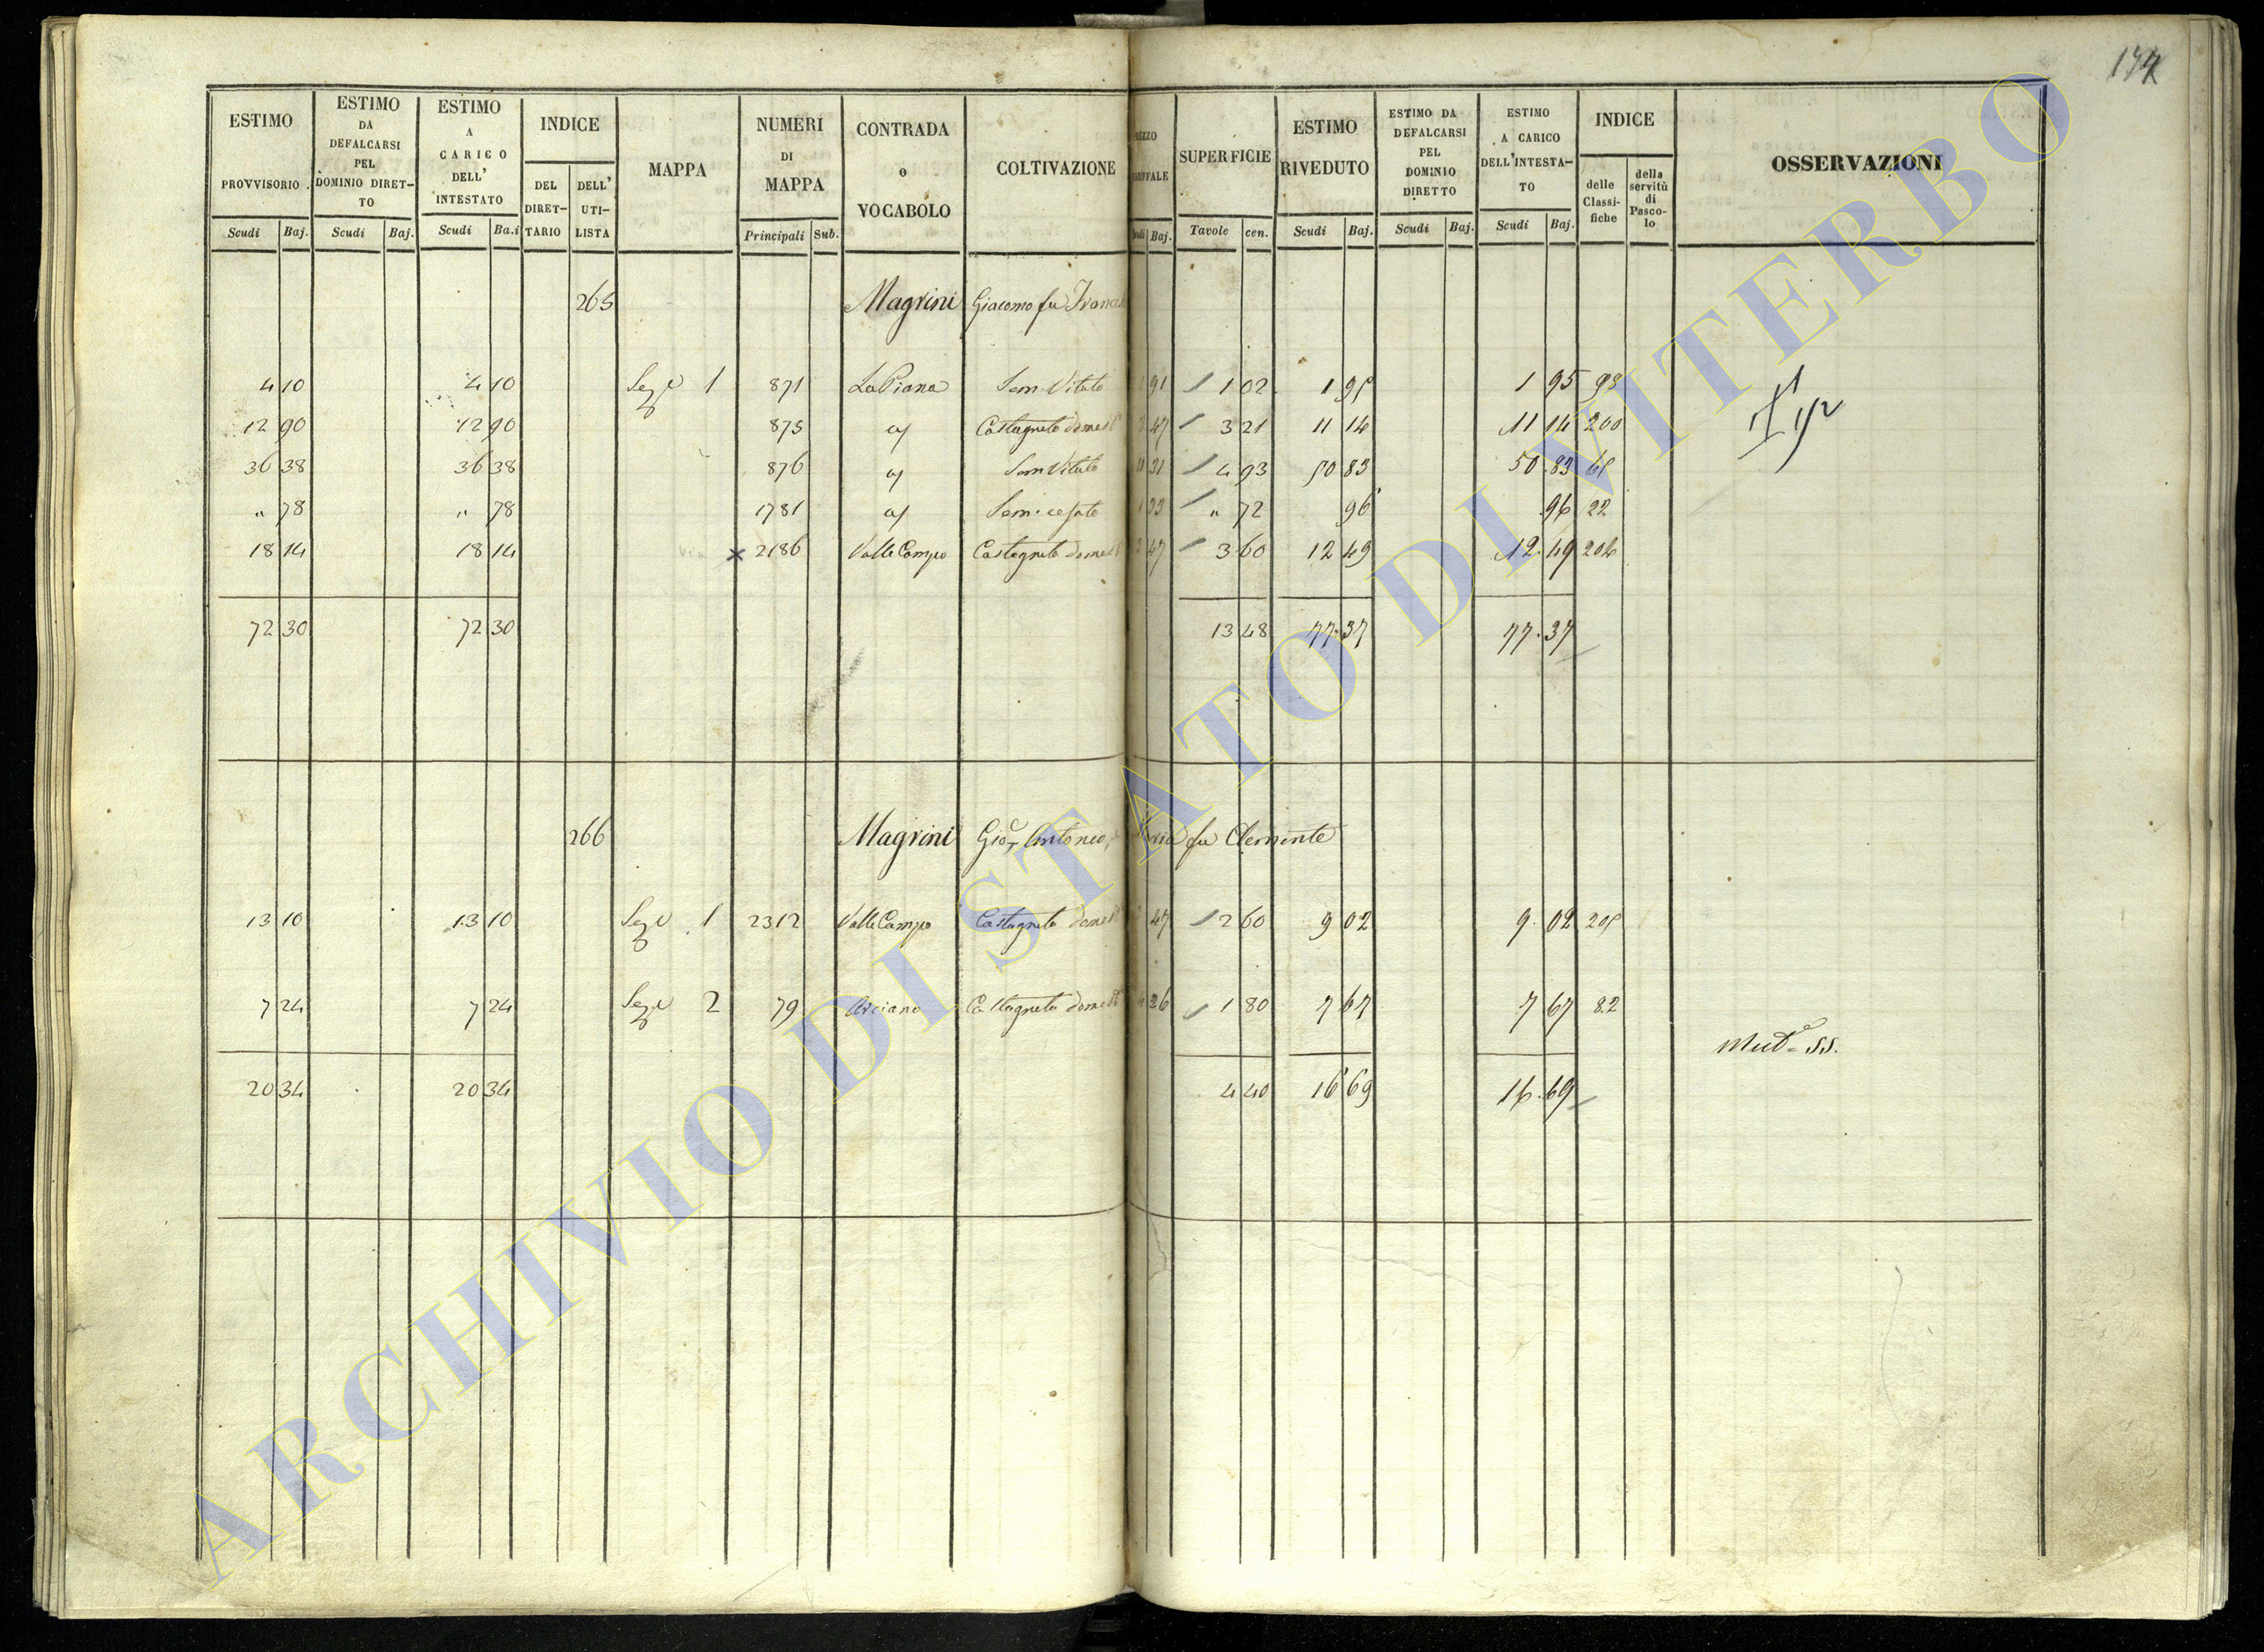 174
ESTIMO PROVVISORIO. Scudi Baj.
ESTIMO DA DEFALCARSI PEL DOMINIO DIRET-TO Scudi Baj.
ESTIMO A CARICO DELL' INTESTATO Scudi Ba.i
INDICE DEL DIRET-TARIO DELL' UTI-LISTA
MAPPA
NUMERI DI MAPPA Principali Sub.
CONTRADA o VOCABOLO
COLTIVAZIONE
Baj.
SUPERFICIE Tavole cen.
ESTIMO RIVEDUTO Scudi Baj.
ESTIMO DA DEFALCARSI PEL DOMINIO DIRETTO Scudi Baj.
ESTIMO A CARICO DELL'INTESTA-TO Scudi Baj.
INDICE delle Classi-fiche della servitù di Pasco-lo
OSSERVAZIONI
265 Magrini Giacomo fu
4 10 4 10 Sez.e 1 871 La Piana Sem. Vitato 91 1 02 1 95 1 95 98
12 90 12 90 875 Castagneto domest 47 3 21 11 14 11 14 200
36 38 36 38 876 Sem. Vitato 31 4 93 50 83 50 83
" 78 " 78 1781 33 " 72 96 96 22
18 14 18 14 × 2186 Valle Campo Castagneto domest 47 3 60 12 49 12 49
72 30 72 30 13 48 77 37 77 37
266 Magrini Gio, Antonio, fu Clemente
13 10 13 10 Sez.e 1 2312 Valle Campo Castagneto domest 47 2 60 9 02 9 02 205
7 24 7 24 Sez.e 2 79 Arciano Castagneto domest 26 1 80 7 67 7 67 82
Mut.e SS.
20 34 20 34 4 40 16 69 16 69
ARCHIVIO DI STATO DI VITERBO